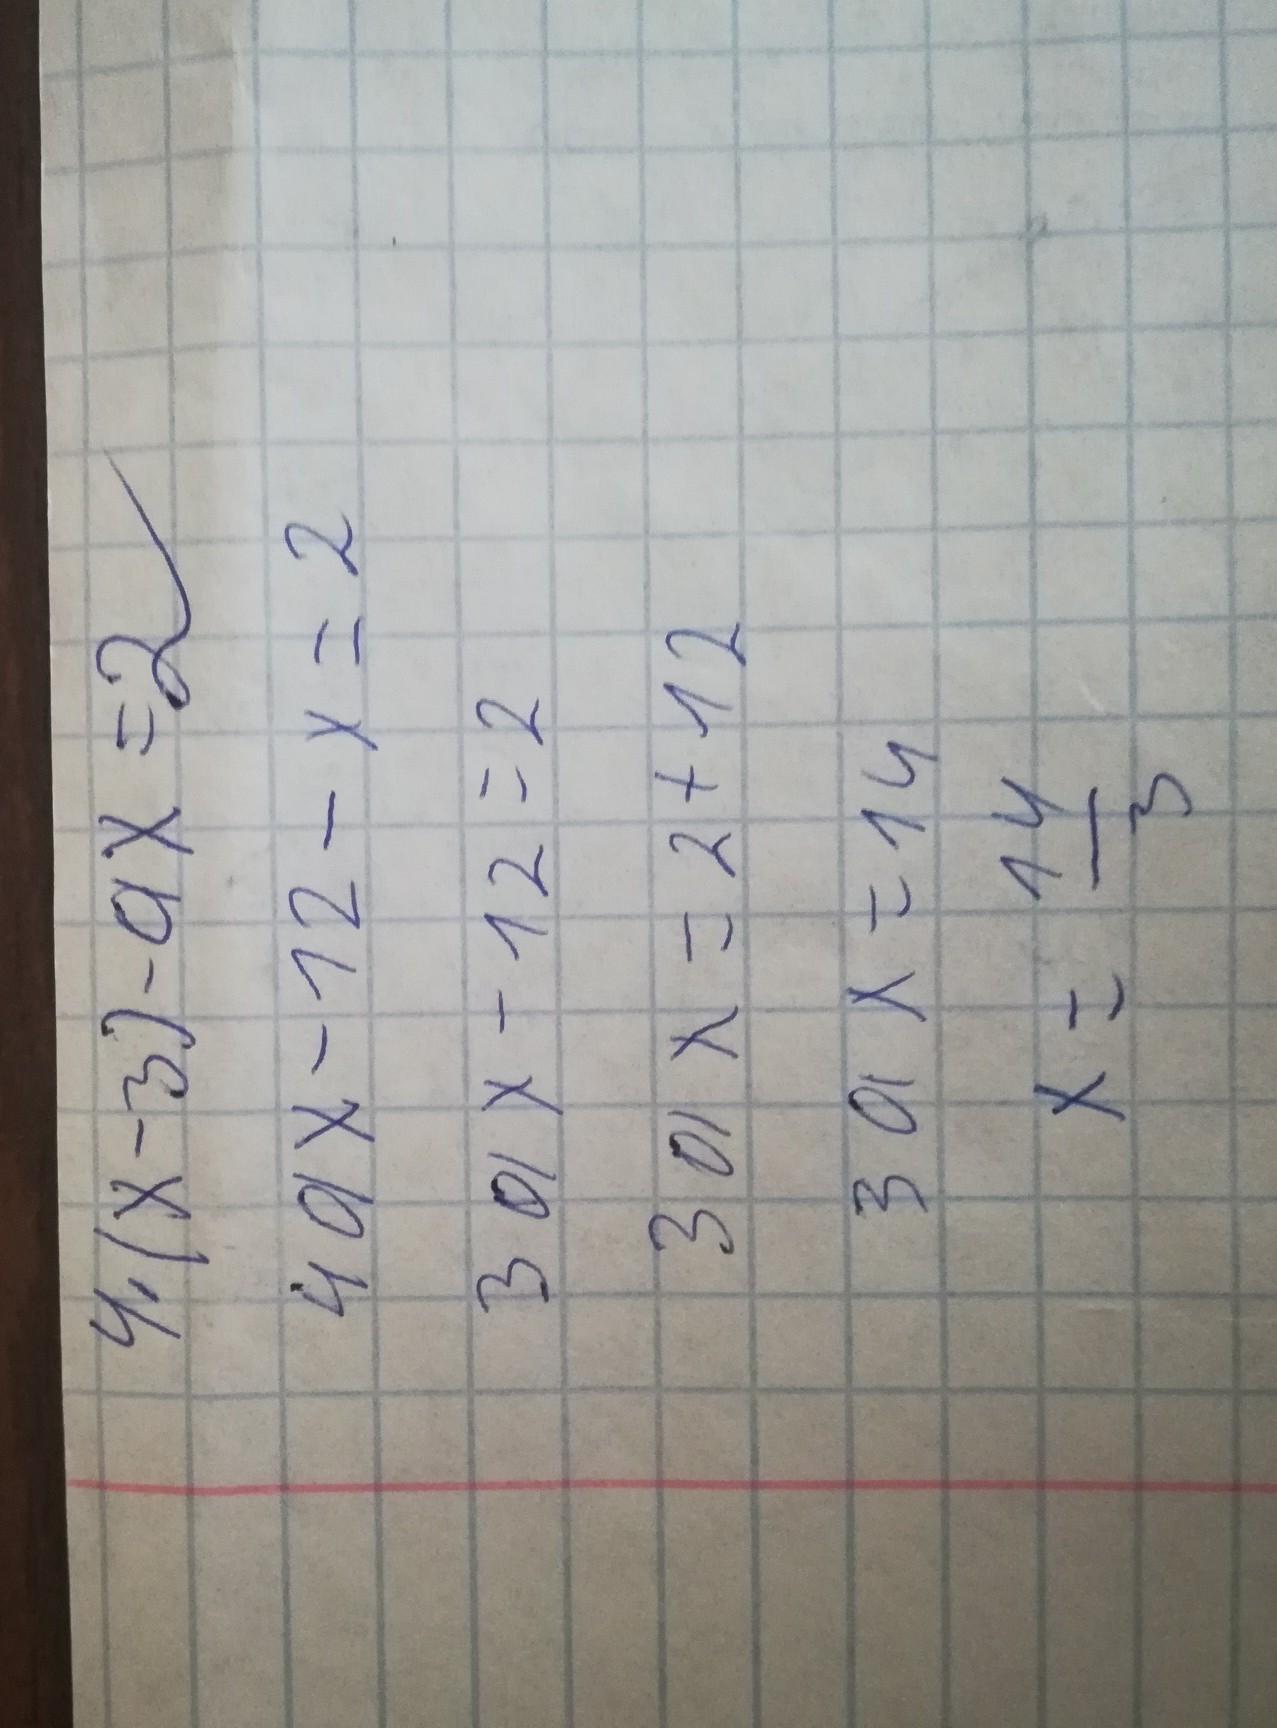 4,(x-3)-ax=2
4ax-12-x=2
3ax-12=2
3ax=2+12
3ax=14
x=14/3